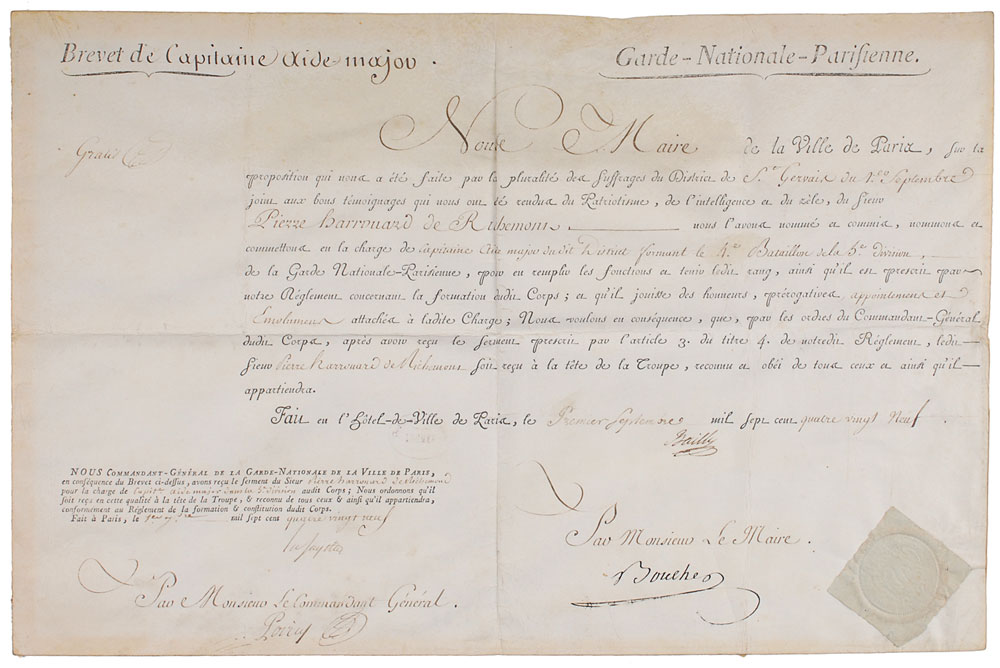 Brevet de Capitaine Aide-major.
Garde-Nationale-Parisienne.
Gratis
Nous Maire de la Ville de Paris, sur la
proposition qui nous a été faite par la pluralité des Suffrages du District de St Gervais du 1er Septembre
joint aux bons témoignages qui nous ont été rendus du Patriotisme, de l'intelligence et du zèle, du Sieur
Pierre harrouard de Richemont nous l'avons nommé et commis, nommons et
commettons en la charge de Capitaine Aide major du dit District formant le 4e Bataillon de la 5e division
de la Garde Nationale-Parisienne, pour en remplir les fonctions et tenir ledit rang, ainsi qu'il est prescrit par
notre Réglement concernant la formation dudit Corps; et qu'il jouisse des honneurs, prérogatives, appointemens et
Emolumens attachés à ladite Charge; Nous voulons en conséquence, que, par les ordres du Commandant-Général
dudit Corps, après avoir reçu le serment prescrit par l'article 3. du titre 4. de notredit Réglement, ledit
Sieur Pierre harrouard de Richemont soit reçu à la tête de la Troupe, reconnu et obéi de tous ceux et ainsi qu'il
appartiendra.
Fait en l'Hôtel-de-Ville de Paris, le Premier Septembre mil sept cent quatre vingt Neuf
Bailly
NOUS COMMANDANT-GÉNÉRAL DE LA GARDE-NATIONALE DE LA VILLE DE PARIS,
en conséquence du Brevet ci-dessus, avons reçu le serment du Sieur Pierre harrouard de Richemond
pour la charge de Capitne aide major dans la 5e division audit Corps; Nous ordonnons qu'il
soit reçu en cette qualité à la tête de la Troupe, & reconnu de tous ceux & ainsi qu'il appartiendra,
conformément au Réglement de la formation & constitution dudit Corps.
Fait à Paris, le 1er 7bre mil sept cent quatre vingt neuf
lafayette
Par Monsieur Le Maire.
Boucher
Par Monsieur Le Commandant Général.